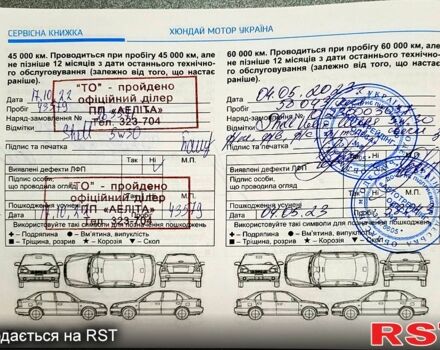 СЕРВІСНА КНИЖКА
ХЮНДАЙ МОТОР УКРАЇНА
45 000 км. Проводиться при пробігу 45 000 км, але
не пізніше 12 місяців з дати останнього технічно-
го обслуговування (залежно від того, що настає
раніше)
"ТО" - пройдено
офіційний ділер
ПП «АЕЛІТА»
Тел. 323-704
Дата 17.10.22
Пробіг 43579
Наряд-замовлення №
Відмітки Shell 5w30
Підпис та печатка
Так Ні
Виявлені дефекти ЛФП М.П.
Підпис особи,
що проводила огляд
"ТО" - пройдено
офіційний ділер
ПП «АЕЛІТА»
Тел. 323-704
Пошкодження усунені
17.10.22 43579
Використовувати такі символи для позначення пошкоджень
+ – Подряпина ● – Вм'ятина, випуклість
– Тріщина, розрив X – Корозія ▼ – Скол
60 000 км. Проводиться при пробігу 60 000 км, але
не пізніше 12 місяців з дати останнього технічно-
го обслуговування (залежно від того, що настає
раніше)
Дата 04.05.2023
Пробіг
Наряд-замовлення
Відмітки
Підпис та печатка
Так Ні
Виявлені дефекти ЛФП
Підпис особи,
що проводила огляд
Пошкодження усунені
04.05.23
Використовувати такі символи для позначення пошкоджень
+ – Подряпина ● – Вм'ятина, випуклість
– Тріщина, розрив X – Корозія ▼ – Скол
одається на RST
RS